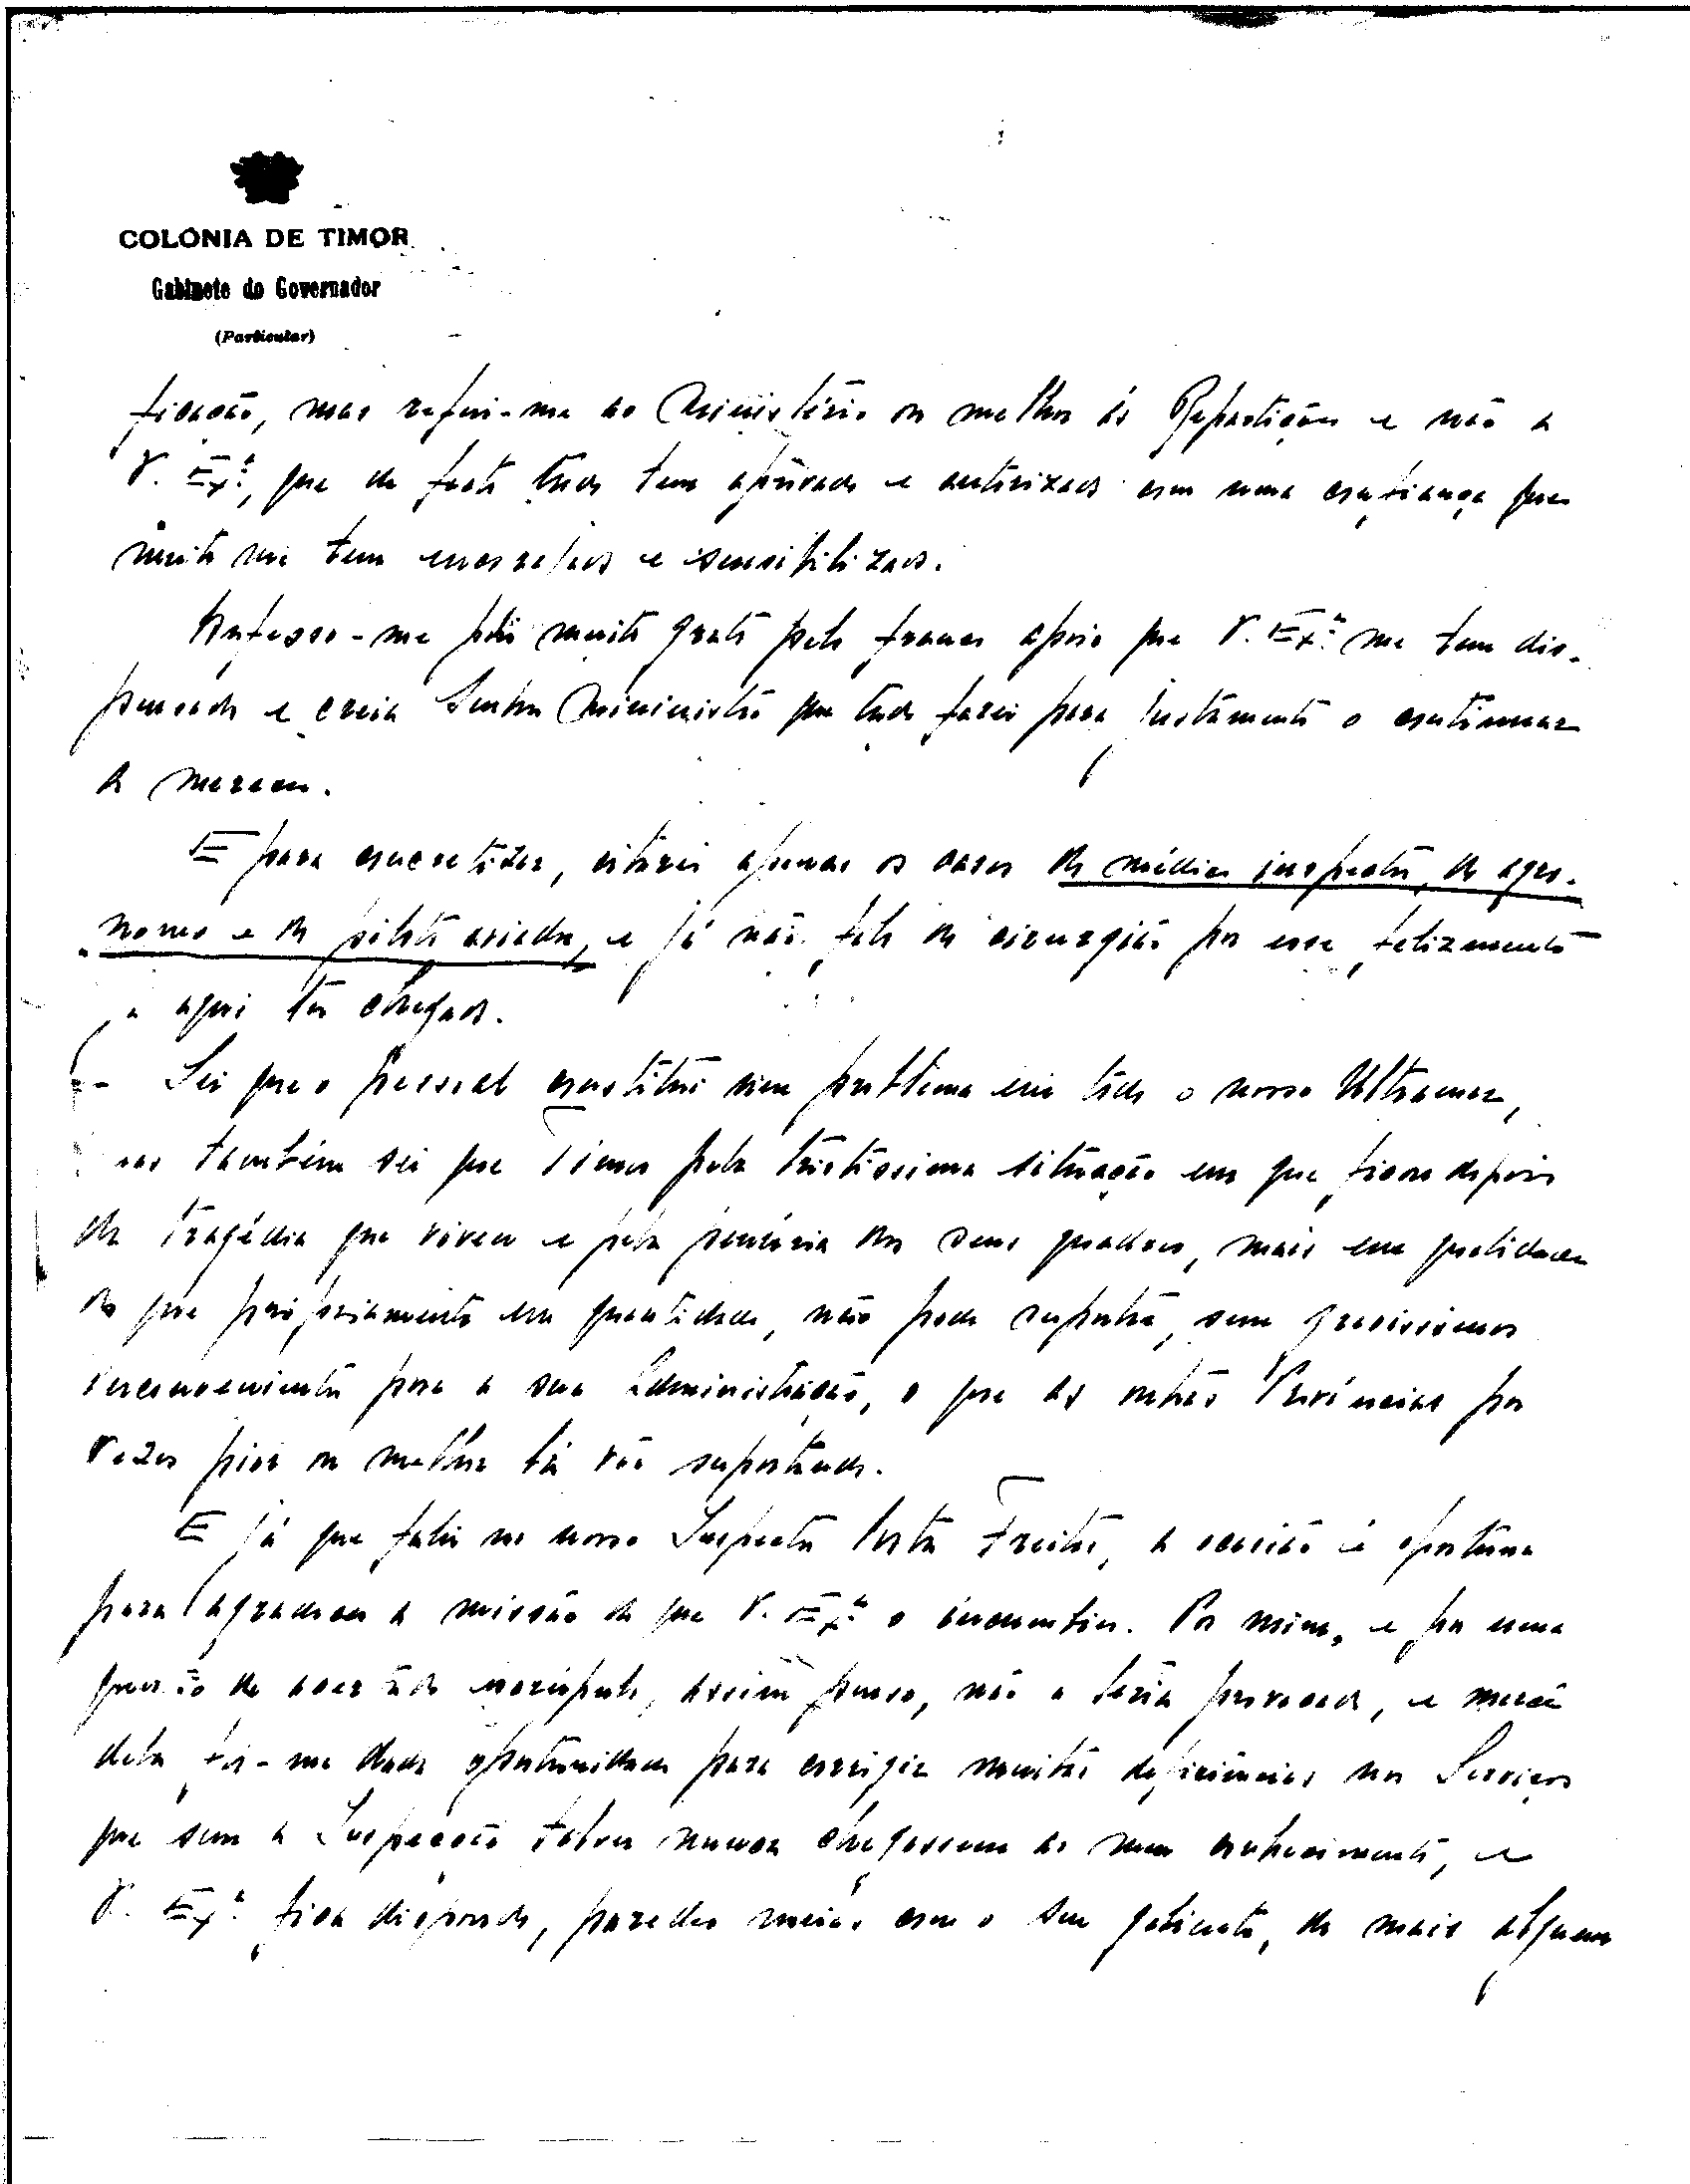 COLÓNIA DE TIMOR
Gabinete do Governador
(Particular)
ficação, mas referi-me ao Ministério ou melhor ás Repartições e não a
V. Ex.ª, que de facto tudo tem aprovado e autorizado com uma confiança que
muito me tem encorajado e sensibilizado.
Confesso-me pois muito grato pelo franco apoio que V. Ex.ª me tem dis-
pensado e creia Senhor Ministro que tudo farei para justamente o continuar
a merecer.
E para concretizar, citarei apenas os casos do médico inspector, do agro-
nomo e do piloto aviador, e já não falo do cirurgião por esse felizmente
a aqui ter chegado.
Sei que o pessoal constitui um problema em todo o nosso Ultramar,
mas também sei que Timor pela tristissima situação em que ficou depois
da tragédia que viveu e pela penúria dos seus quadros, mais em qualidade
do que propriamente em quantidade, não pode suportar, sem gravissimos
inconvenientes para a sua Administração, o que as outras Provincias por
vezes pior ou melhor lá vão suportando.
E já que falei no nosso Inspector Costa Freitas, a ocasião é oportuna
para agradecer a missão de que V. Ex.ª o incumbiu. Por mim, e por uma
questão de escrupulo, assim penso, não a teria provocado, e mercê
dela foi-me dada oportunidade para corrigir muitas deficiências nos Serviços
que sem a Inspecção talvez nunca chegassem ao meu conhecimento, e
V. Ex.ª fica dispondo, paredes meias com o seu gabinete, de mais alguem